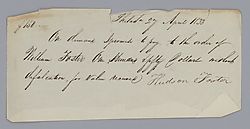 $150 Philad. 27 April 1833
On demand I promise to pay to the order of
William Foster One Hundred & fifty Dollars without
defalcation for value received Hudson Foster